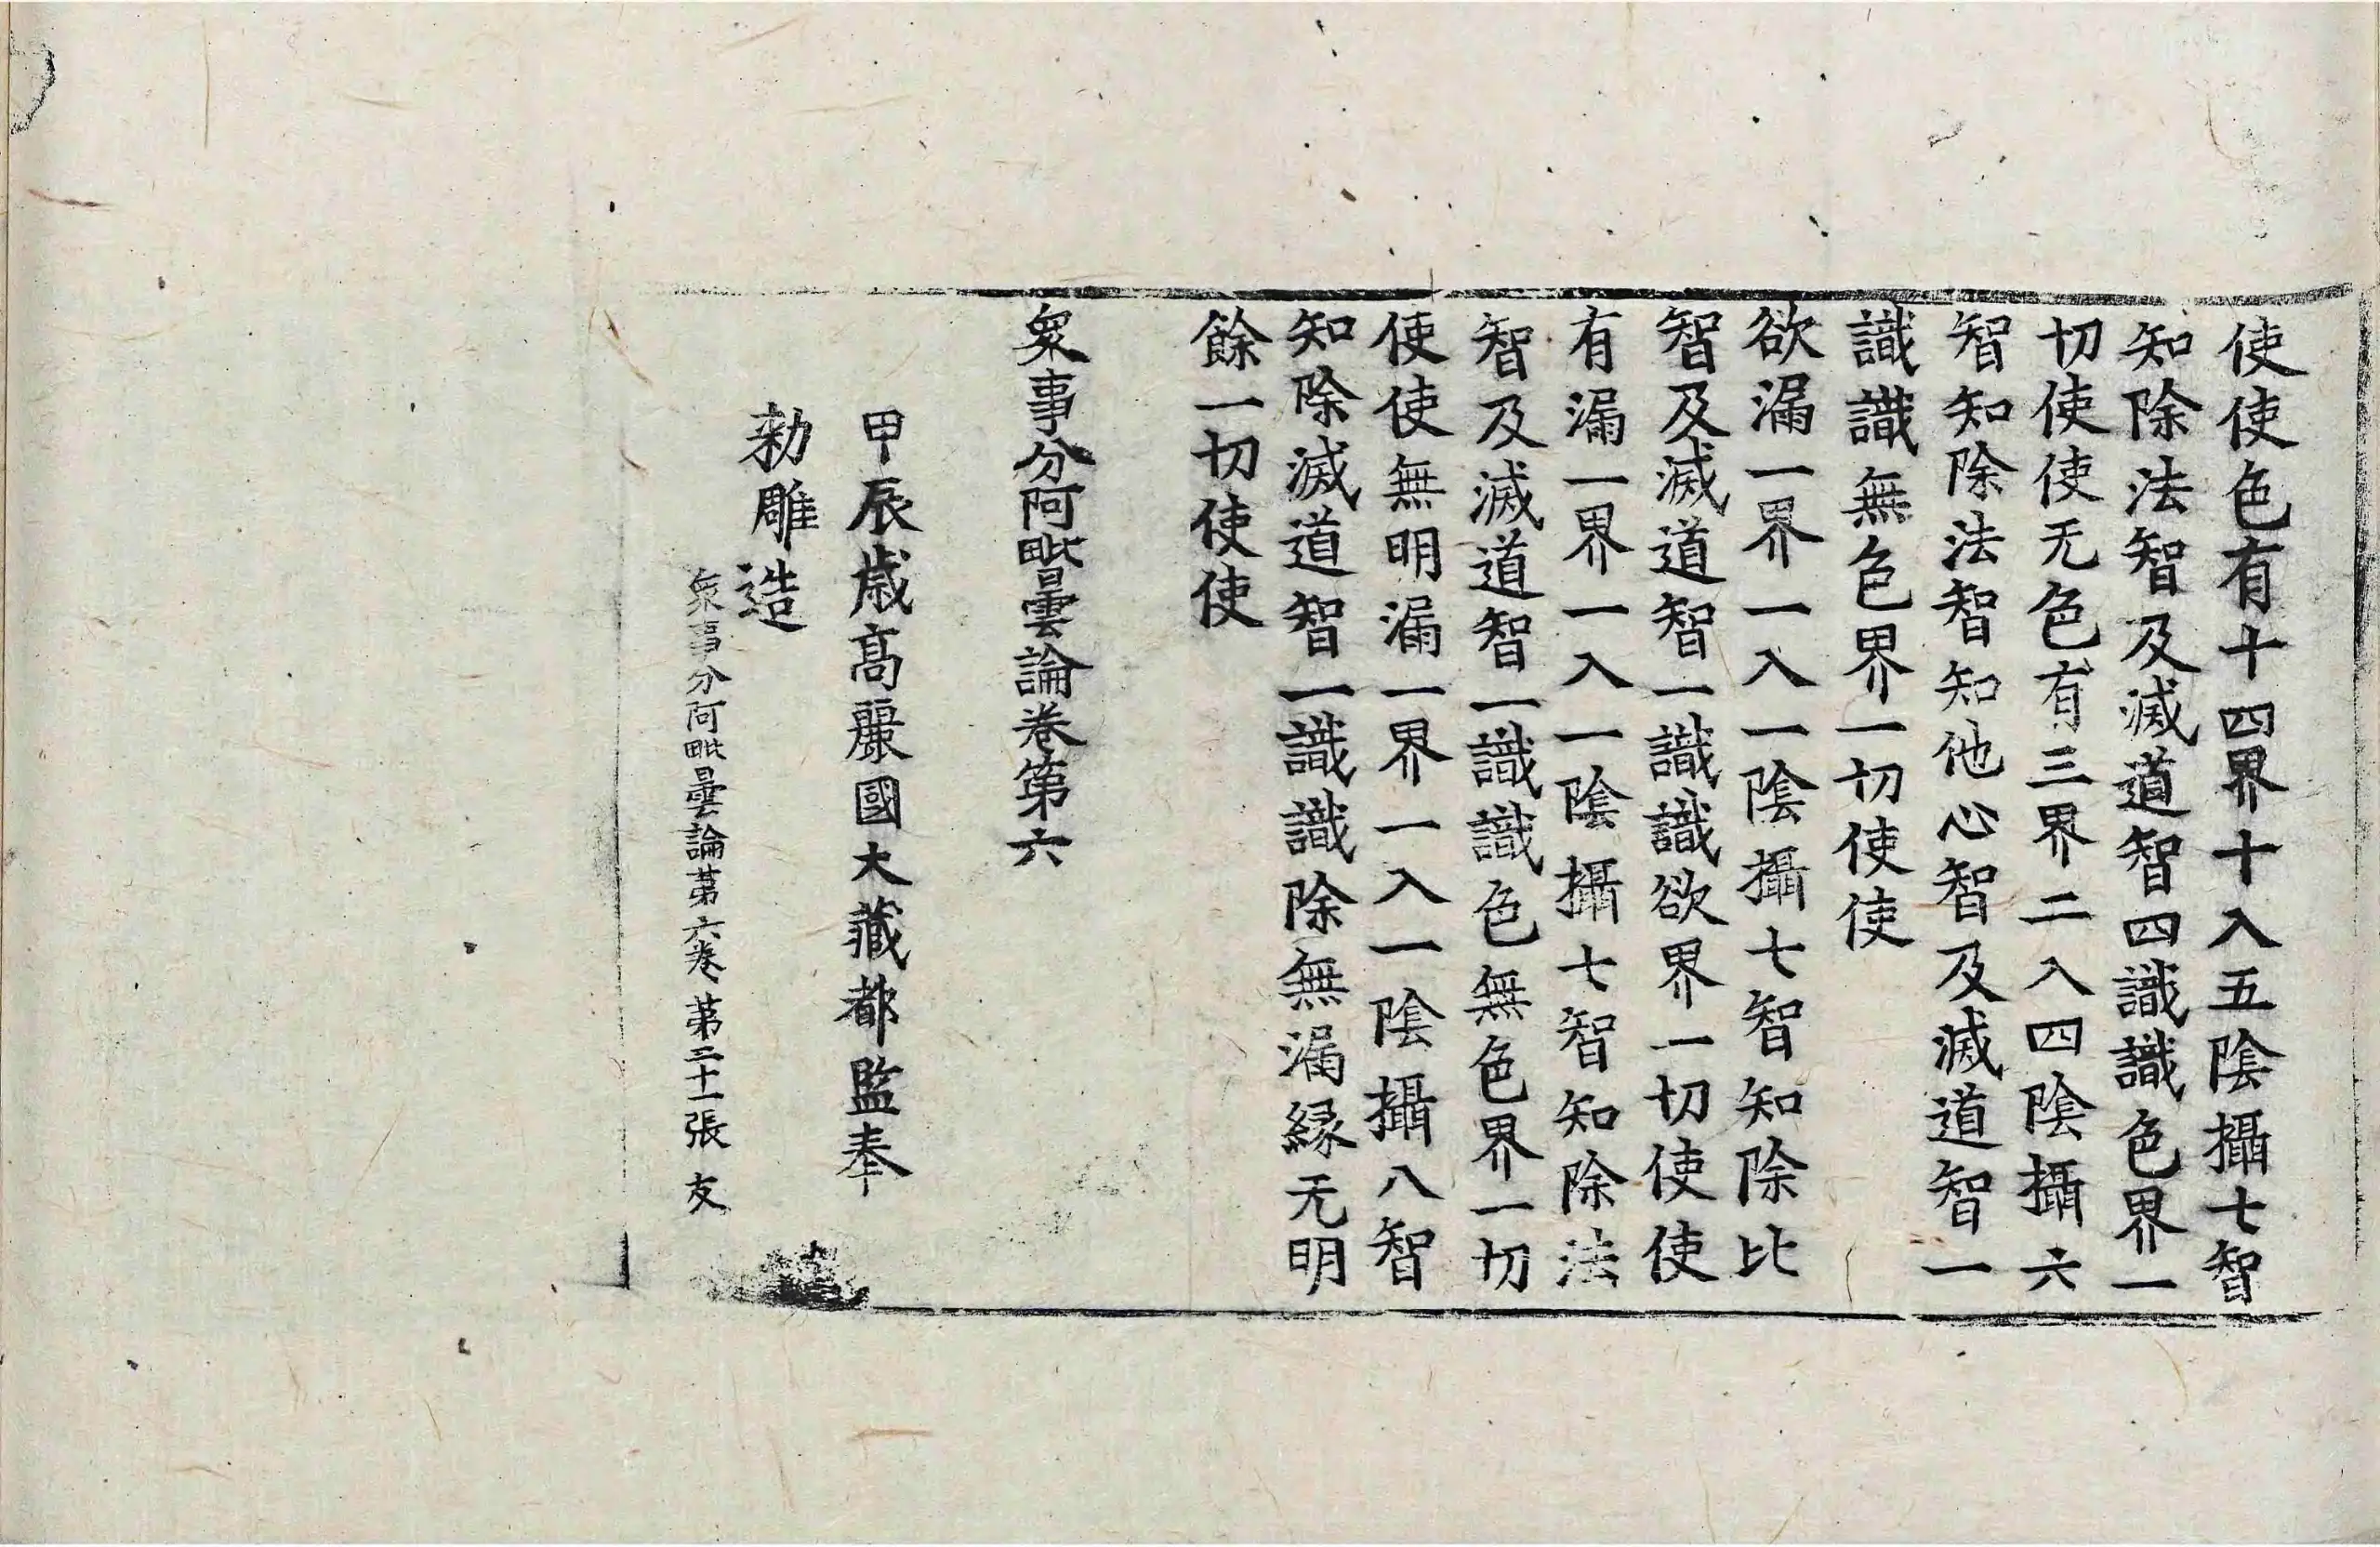 使使色有十四界十入五陰攝七智
知除法智及滅道智四識識色界一
切使使无色有三界二入四陰攝六
智知除法智知他心智及滅道智一
識識無色界一切使使
欲漏一界一入一陰攝七智知除比
智及滅道智一識識欲界一切使使
有漏一界一入一陰攝七智知除法
智及滅道智一識識色無色界一切
使使無明漏一界一入一陰攝八智
知除滅道智一識識除無漏緣无明
餘一切使使
衆事分阿毗曇論卷第六
甲辰歲高麗國大藏都監奉
勑雕造
衆事分阿毗曇論苐六卷 苐三十一張 友